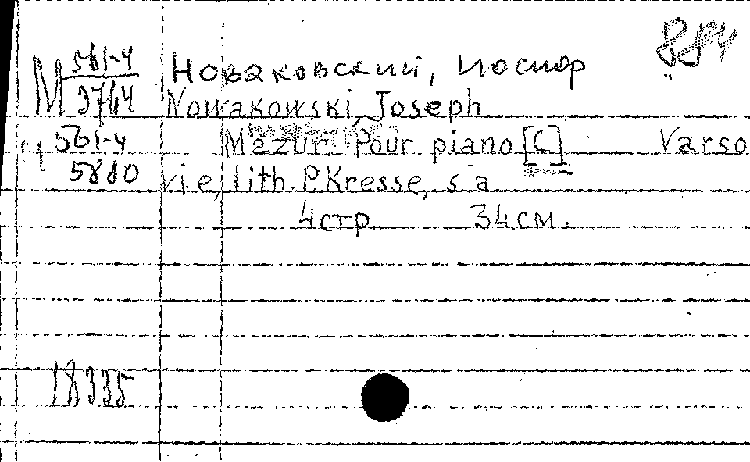 884
М 561-4 Новаковский, Иосиф
3764 Nowakowski, Joseph
" 561-4 Mazur. Pour piano [C] Varso
5880 vie, lith. P. Kresse, s a
4 стр 34 см.
18335